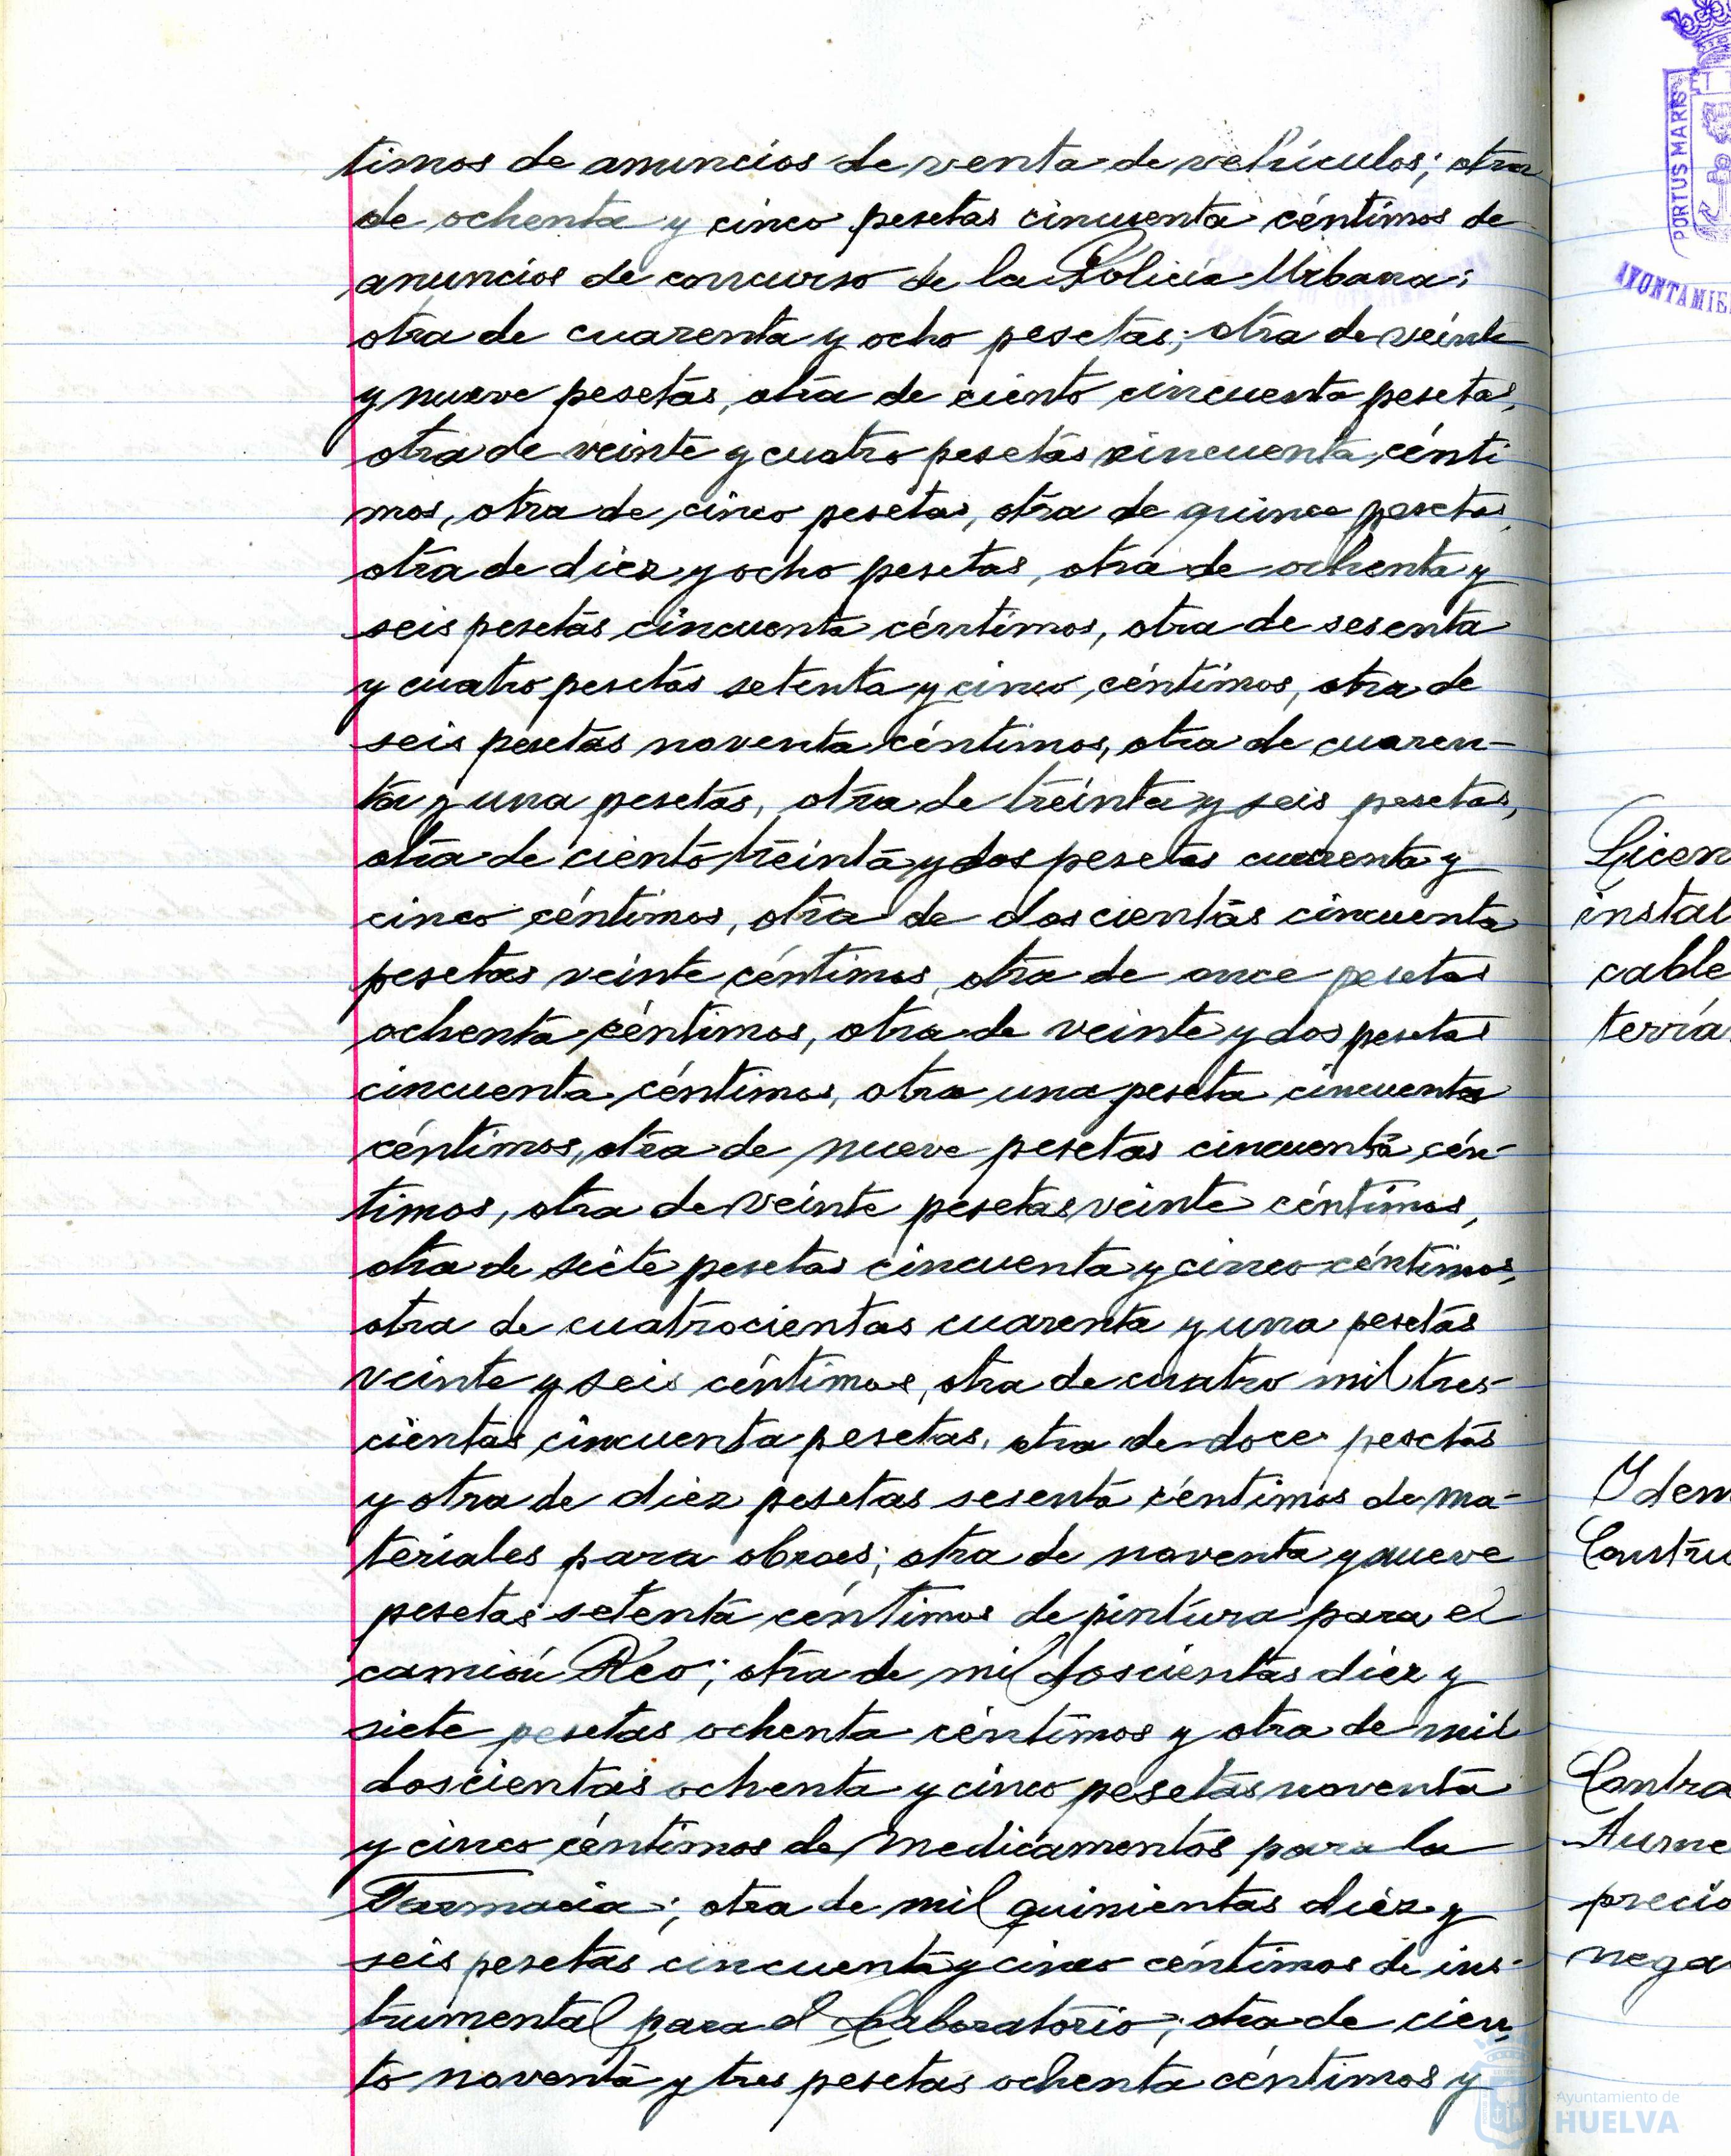 timos de anuncios de venta de vehículos; otra
de ochenta y cinco pesetas cincuenta céntimos de
anuncios de concurso de la Policía Urbana;
otra de cuarenta y ocho pesetas; otra de veinte
y nueve pesetas, otra de ciento cincuenta pesetas,
otra de veinte y cuatro pesetas cincuenta cénti
mos, otra de cinco pesetas, otra de quince pesetas,
otra de diez y ocho pesetas, otra de ochenta y
seis pesetas cincuenta céntimos, otra de sesenta
y cuatro pesetas setenta y cinco céntimos, otra de
seis pesetas noventa céntimos, otra de cuaren-
ta y una pesetas, otra de treinta y seis pesetas,
otra de ciento treinta y dos pesetas cuarenta y
cinco céntimos, otra de doscientas cincuenta
pesetas veinte céntimos, otra de once pesetas
ochenta céntimos, otra de veinte y dos pesetas
cincuenta céntimos, otra una peseta cincuenta
céntimos, otra de nueve pesetas cincuenta cén-
timos, otra de veinte pesetas veinte céntimos,
otra de siete pesetas cincuenta y cinco céntimos,
otra de cuatrocientas cuarenta y una pesetas
veinte y seis céntimos, otra de cuatro mil tres-
cientas cincuenta pesetas, otra de doce pesetas
y otra de diez pesetas sesenta céntimos de ma-
teriales para obras; otra de noventa y nueve
pesetas setenta céntimos de pintura para el
camión Reo; otra de mil doscientas diez y
siete pesetas ochenta céntimos y otra de mil
doscientas ochenta y cinco pesetas noventa
y cinco céntimos de medicamentos para la
Farmacia; otra de mil quinientas diez y
seis pesetas cincuenta y cinco céntimos de ins-
trumental para el Laboratorio; otra de cien-
to noventa y tres pesetas ochenta céntimos y
PORTUS MARIS
ET T
AYUNTAMIE
Licen
instal
cable
terrá
Idem
Constru
Contra
Aume
precio
nega
Ayuntamiento de
HUELVA